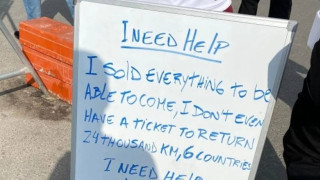 I NEED HELP
I SOLD EVERYTHING TO BE
ABLE TO COME, I DON'T EVEN
HAVE A TICKET TO RETURN
24 THOUSAND KM, 6 COUNTRIES
I NEED HELP